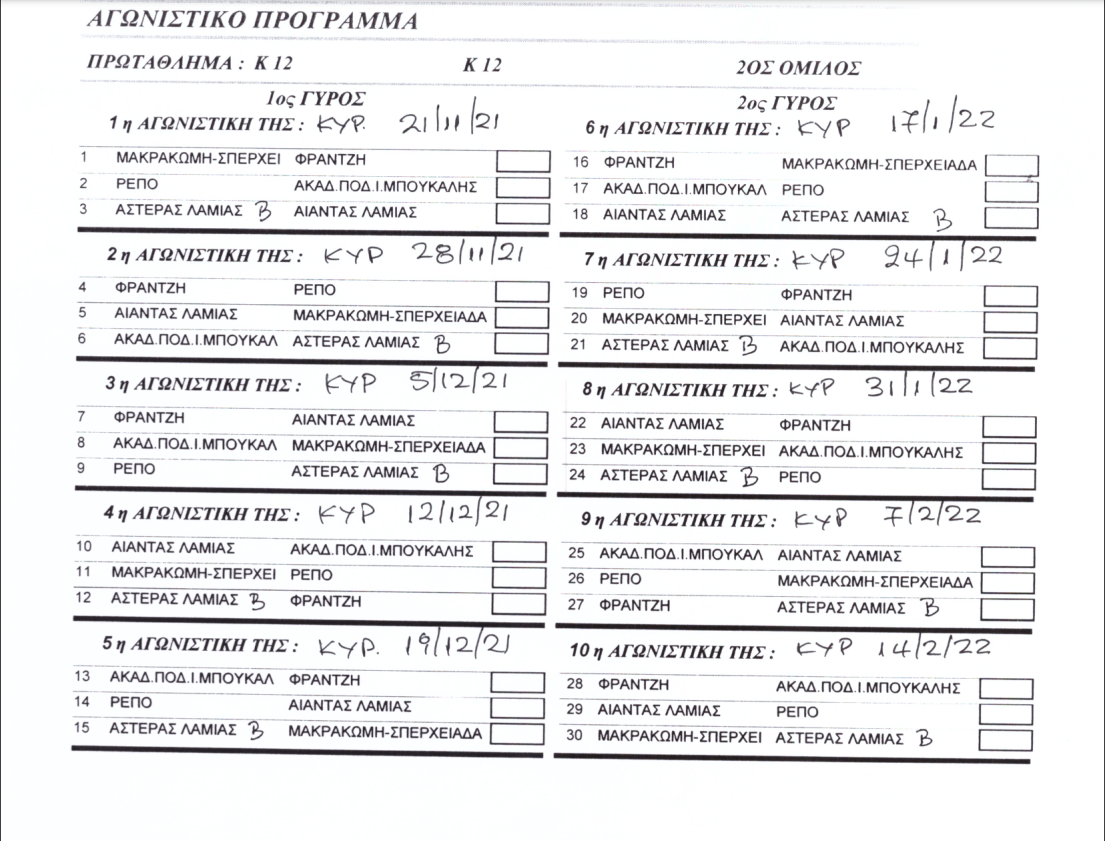 ΑΓΩΝΙΣΤΙΚΟ ΠΡΟΓΡΑΜΜΑ
ΠΡΩΤΑΘΛΗΜΑ : Κ 12 Κ 12 2ΟΣ ΟΜΙΛΟΣ
1ος ΓΥΡΟΣ
1 η ΑΓΩΝΙΣΤΙΚΗ ΤΗΣ : ΚΥΡ. 21/11/21
1 ΜΑΚΡΑΚΩΜΗ-ΣΠΕΡΧΕΙ ΦΡΑΝΤΖΗ
2 ΡΕΠΟ ΑΚΑΔ.ΠΟΔ.Ι.ΜΠΟΥΚΑΛΗΣ
3 ΑΣΤΕΡΑΣ ΛΑΜΙΑΣ Β ΑΙΑΝΤΑΣ ΛΑΜΙΑΣ
2 η ΑΓΩΝΙΣΤΙΚΗ ΤΗΣ : ΚΥΡ 28/11/21
4 ΦΡΑΝΤΖΗ ΡΕΠΟ
5 ΑΙΑΝΤΑΣ ΛΑΜΙΑΣ ΜΑΚΡΑΚΩΜΗ-ΣΠΕΡΧΕΙΑΔΑ
6 ΑΚΑΔ.ΠΟΔ.Ι.ΜΠΟΥΚΑΛ ΑΣΤΕΡΑΣ ΛΑΜΙΑΣ Β
3 η ΑΓΩΝΙΣΤΙΚΗ ΤΗΣ : ΚΥΡ 5/12/21
7 ΦΡΑΝΤΖΗ ΑΙΑΝΤΑΣ ΛΑΜΙΑΣ
8 ΑΚΑΔ.ΠΟΔ.Ι.ΜΠΟΥΚΑΛ ΜΑΚΡΑΚΩΜΗ-ΣΠΕΡΧΕΙΑΔΑ
9 ΡΕΠΟ ΑΣΤΕΡΑΣ ΛΑΜΙΑΣ Β
4 η ΑΓΩΝΙΣΤΙΚΗ ΤΗΣ : ΚΥΡ 12/12/21
10 ΑΙΑΝΤΑΣ ΛΑΜΙΑΣ ΑΚΑΔ.ΠΟΔ.Ι.ΜΠΟΥΚΑΛΗΣ
11 ΜΑΚΡΑΚΩΜΗ-ΣΠΕΡΧΕΙ ΡΕΠΟ
12 ΑΣΤΕΡΑΣ ΛΑΜΙΑΣ Β ΦΡΑΝΤΖΗ
5 η ΑΓΩΝΙΣΤΙΚΗ ΤΗΣ : ΚΥΡ. 19/12/21
13 ΑΚΑΔ.ΠΟΔ.Ι.ΜΠΟΥΚΑΛ ΦΡΑΝΤΖΗ
14 ΡΕΠΟ ΑΙΑΝΤΑΣ ΛΑΜΙΑΣ
15 ΑΣΤΕΡΑΣ ΛΑΜΙΑΣ Β ΜΑΚΡΑΚΩΜΗ-ΣΠΕΡΧΕΙΑΔΑ
2ος ΓΥΡΟΣ
6 η ΑΓΩΝΙΣΤΙΚΗ ΤΗΣ : ΚΥΡ 17/1/22
16 ΦΡΑΝΤΖΗ ΜΑΚΡΑΚΩΜΗ-ΣΠΕΡΧΕΙΑΔΑ
17 ΑΚΑΔ.ΠΟΔ.Ι.ΜΠΟΥΚΑΛ ΡΕΠΟ
18 ΑΙΑΝΤΑΣ ΛΑΜΙΑΣ ΑΣΤΕΡΑΣ ΛΑΜΙΑΣ Β
7 η ΑΓΩΝΙΣΤΙΚΗ ΤΗΣ : ΚΥΡ 24/1/22
19 ΡΕΠΟ ΦΡΑΝΤΖΗ
20 ΜΑΚΡΑΚΩΜΗ-ΣΠΕΡΧΕΙ ΑΙΑΝΤΑΣ ΛΑΜΙΑΣ
21 ΑΣΤΕΡΑΣ ΛΑΜΙΑΣ Β ΑΚΑΔ.ΠΟΔ.Ι.ΜΠΟΥΚΑΛΗΣ
8 η ΑΓΩΝΙΣΤΙΚΗ ΤΗΣ : ΚΥΡ 31/1/22
22 ΑΙΑΝΤΑΣ ΛΑΜΙΑΣ ΦΡΑΝΤΖΗ
23 ΜΑΚΡΑΚΩΜΗ-ΣΠΕΡΧΕΙ ΑΚΑΔ.ΠΟΔ.Ι.ΜΠΟΥΚΑΛΗΣ
24 ΑΣΤΕΡΑΣ ΛΑΜΙΑΣ Β ΡΕΠΟ
9 η ΑΓΩΝΙΣΤΙΚΗ ΤΗΣ : ΚΥΡ 7/2/22
25 ΑΚΑΔ.ΠΟΔ.Ι.ΜΠΟΥΚΑΛ ΑΙΑΝΤΑΣ ΛΑΜΙΑΣ
26 ΡΕΠΟ ΜΑΚΡΑΚΩΜΗ-ΣΠΕΡΧΕΙΑΔΑ
27 ΦΡΑΝΤΖΗ ΑΣΤΕΡΑΣ ΛΑΜΙΑΣ Β
10 η ΑΓΩΝΙΣΤΙΚΗ ΤΗΣ : ΚΥΡ 14/2/22
28 ΦΡΑΝΤΖΗ ΑΚΑΔ.ΠΟΔ.Ι.ΜΠΟΥΚΑΛΗΣ
29 ΑΙΑΝΤΑΣ ΛΑΜΙΑΣ ΡΕΠΟ
30 ΜΑΚΡΑΚΩΜΗ-ΣΠΕΡΧΕΙ ΑΣΤΕΡΑΣ ΛΑΜΙΑΣ Β